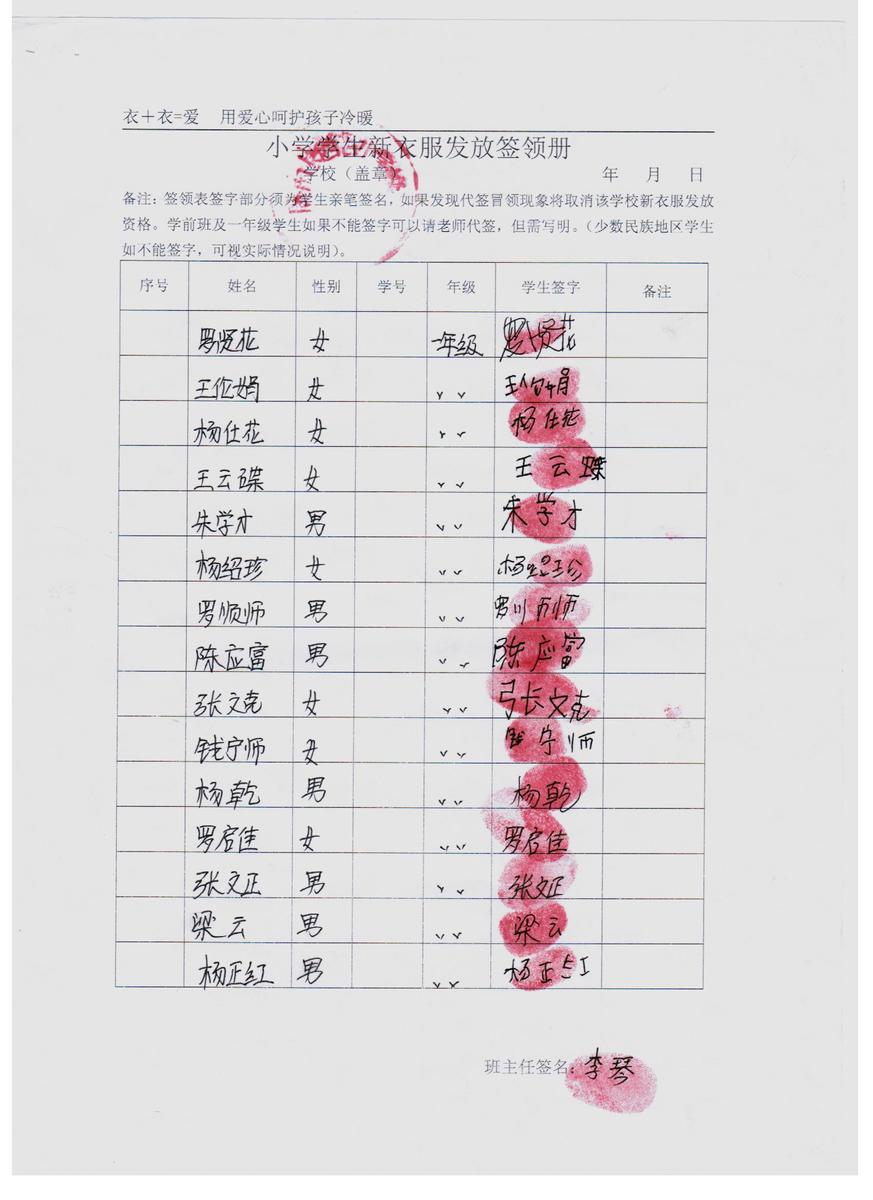 衣＋衣=爱 用爱心呵护孩子冷暖
小学学生新衣服发放签领册
学校（盖章） 年 月 日
备注：签领表签字部分须为学生亲笔签名，如果发现代签冒领现象将取消该学校新衣服发放
资格。学前班及一年级学生如果不能签字可以请老师代签，但需写明。（少数民族地区学生
如不能签字，可视实际情况说明）。
序号 姓名 性别 学号 年级 学生签字 备注
罗贤花 女 一年级 罗贤花
王伦娟 女 〃 王伦娟
杨仕花 女 〃 杨仕花
王云碟 女 〃 王云蝶
朱学才 男 〃 朱学才
杨绍珍 女 〃 杨绍珍
罗顺师 男 〃 罗顺师
陈应富 男 〃 陈应富
张文克 女 〃 张文克
钱宁师 女 〃 钱宁师
杨乾 男 〃 杨乾
罗启佳 女 〃 罗启佳
张文正 男 〃 张文正
梁云 男 〃 梁云
杨正红 男 〃 杨正红
班主任签名：李琴